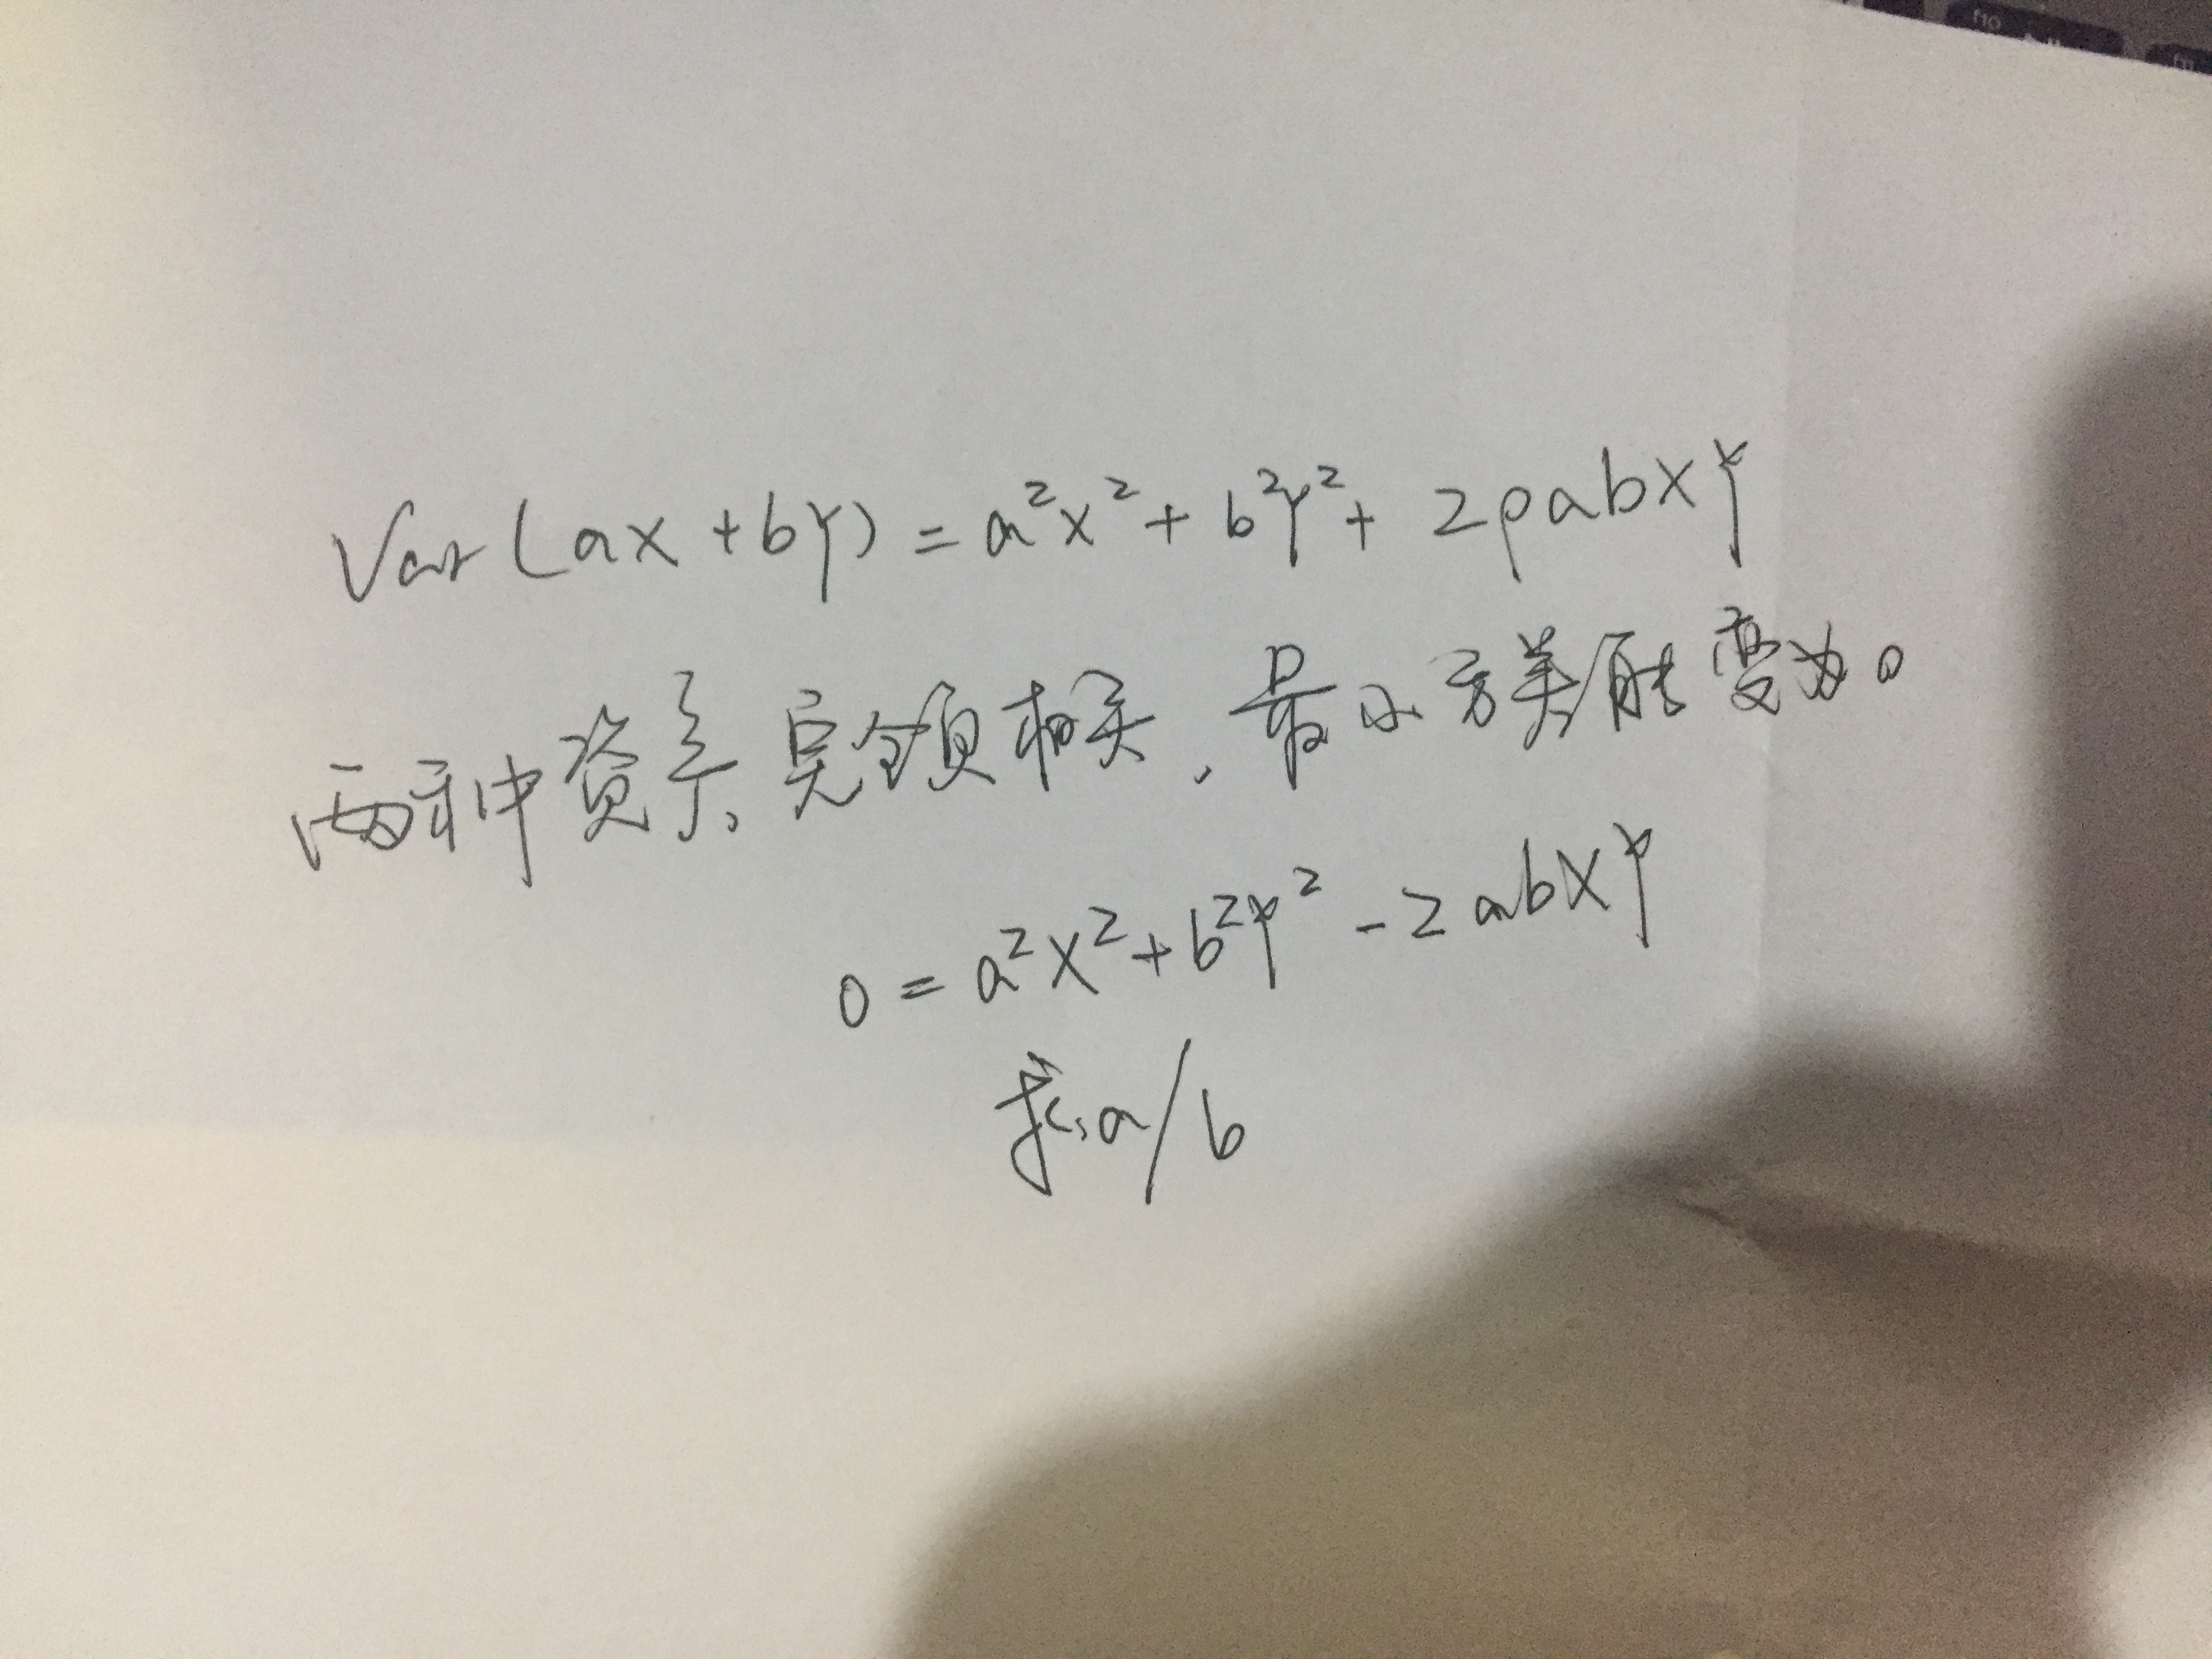 f10
Var(ax+by)=a²x²+b²y²+2ρabxy
两种资产完全负相关,最小方差能变为0
0=a²x²+b²y²-2abxy
求a/b